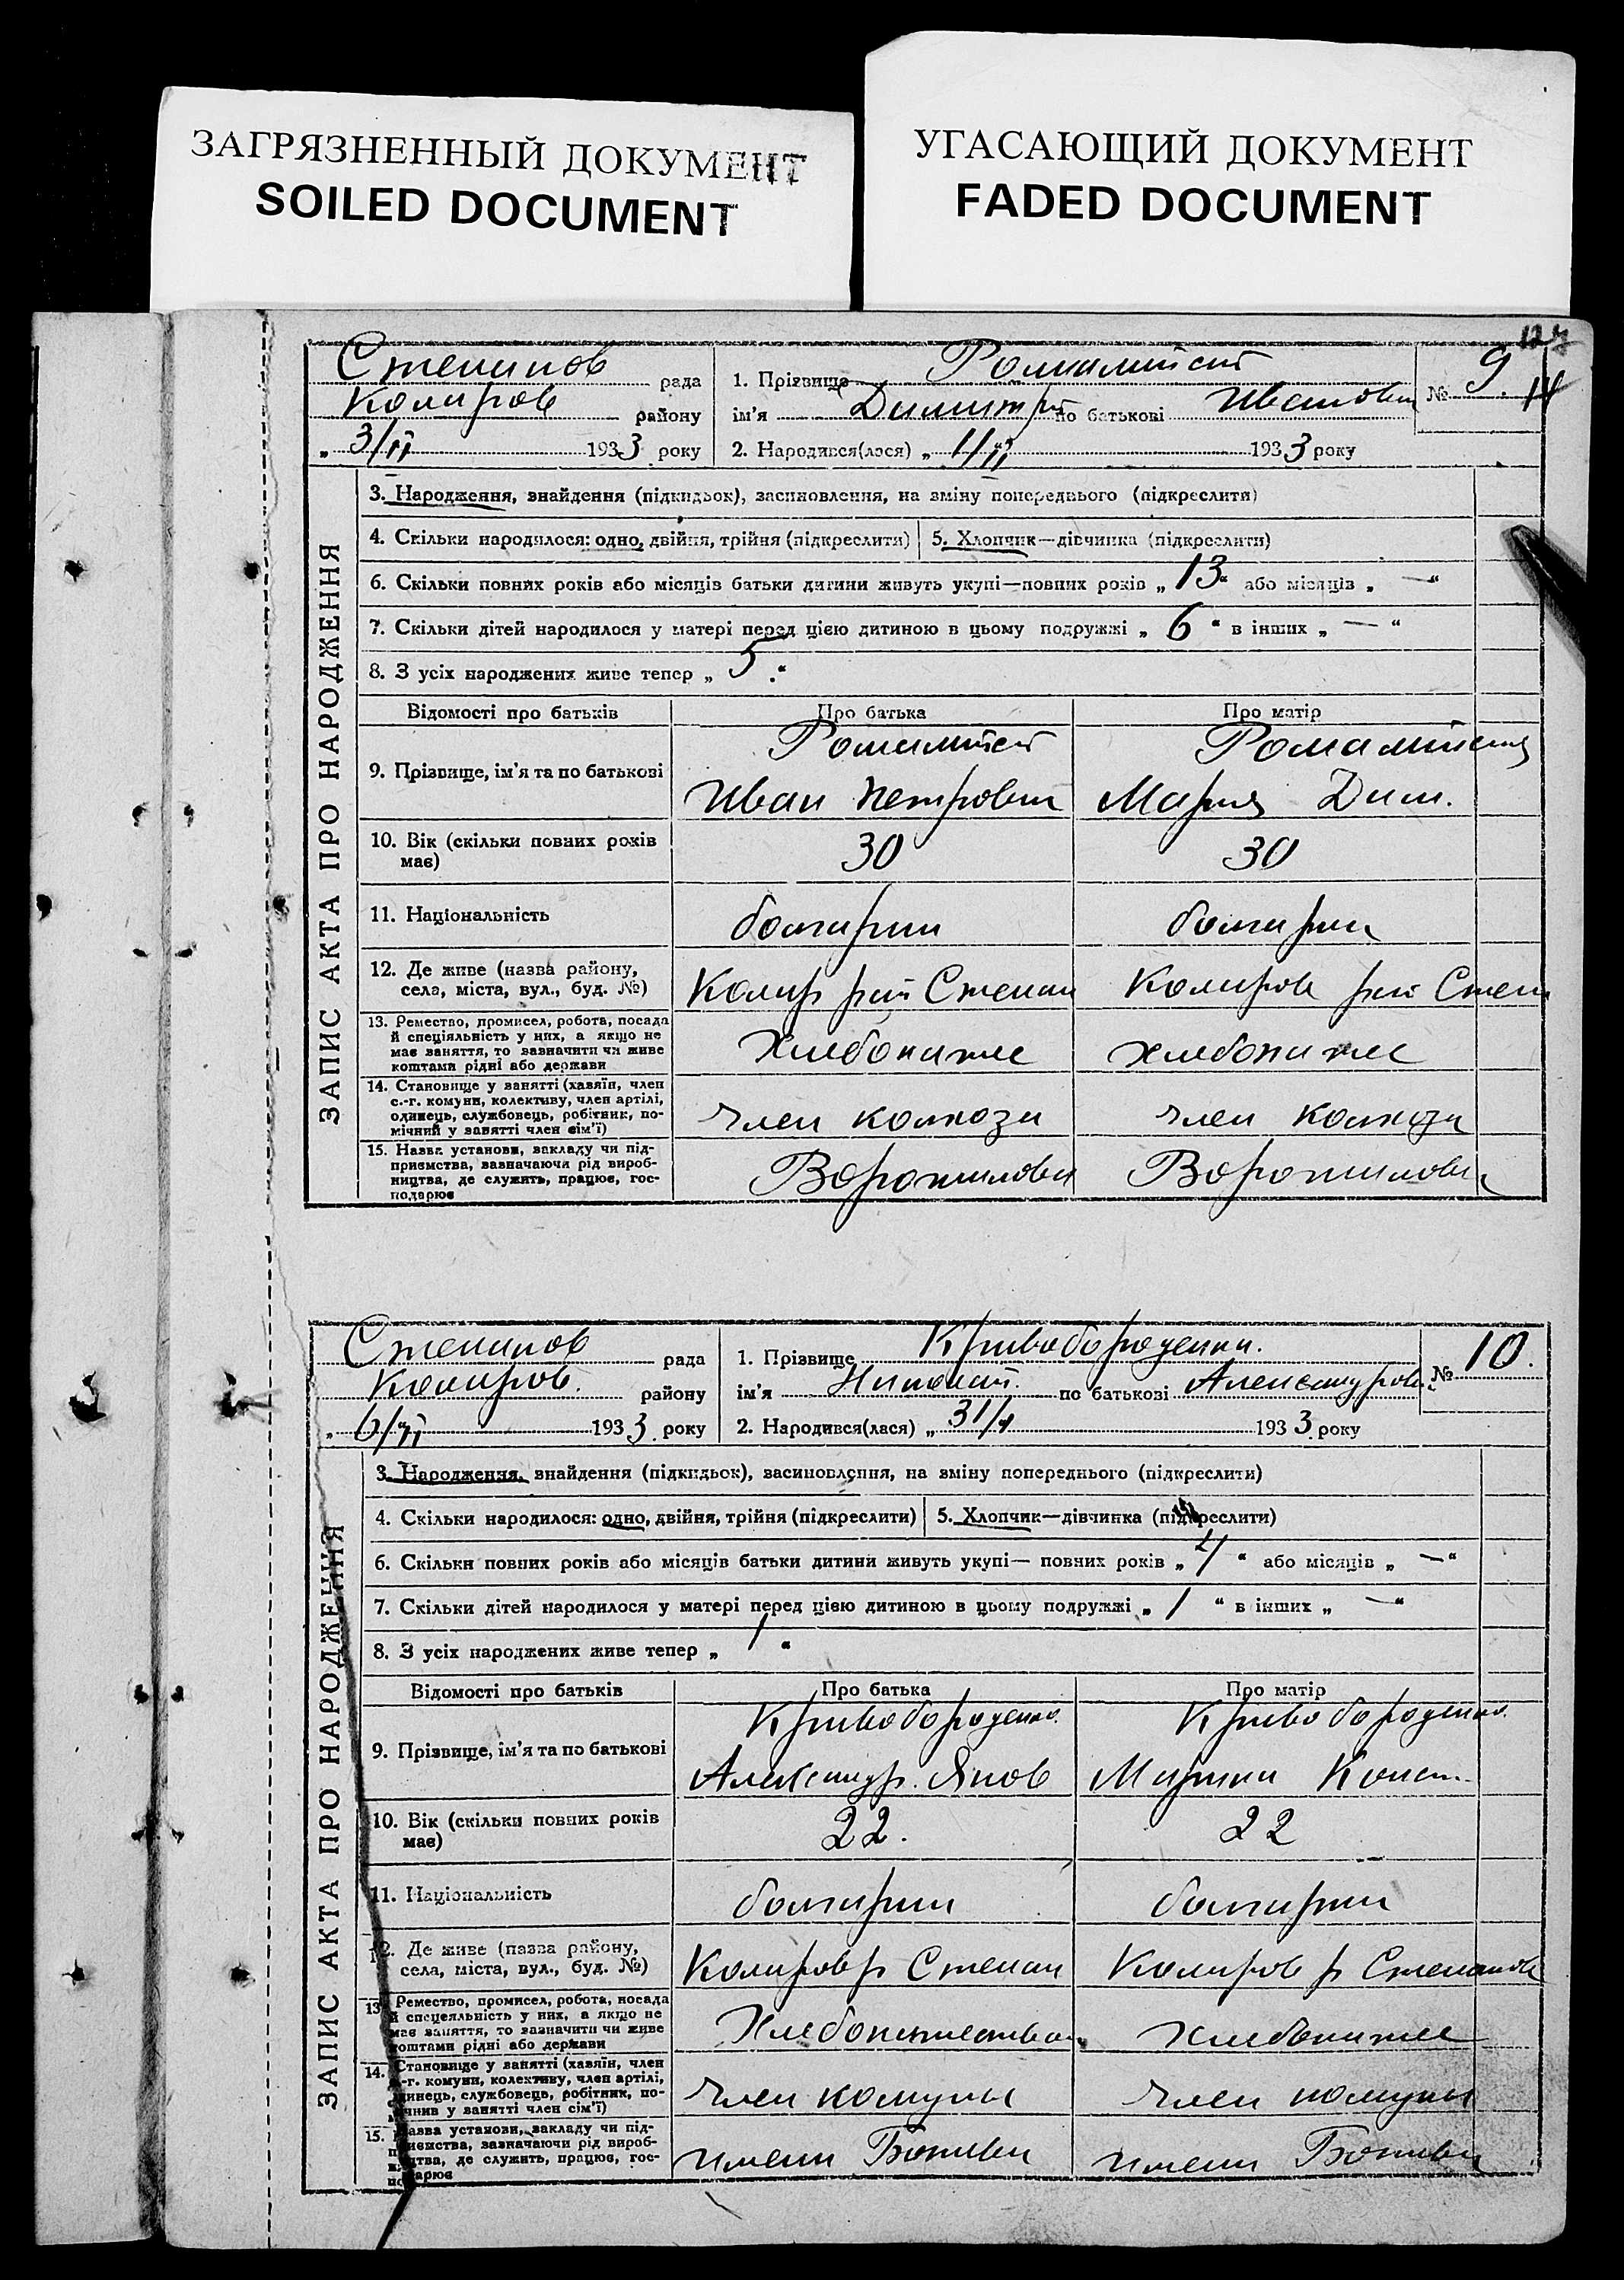 ЗАГРЯЗНЕННЫЙ ДОКУМЕНТ
SOILED DOCUMENT
УГАСАЮЩИЙ ДОКУМЕНТ
FADED DOCUMENT
Степанов рада
Коларов району
„ 3/II 1933 року
1. Прізвище
ім'я Димитрий по батькові Иванович
2. Народився(лася) „ 1/II 1933 року
№ 9.
ЗАПИС АКТА ПРО НАРОДЖЕННЯ
3. Народження, знайдення (підкидьок), засиновлення, на зміну попереднього (підкреслити)
4. Скільки народилося: одно, двійня, трійня (підкреслити) 5. Хлопчик—дівчинка (підкреслити)
6. Скільки повних років або місяців батьки дитини живуть укупі—повних років „ 13 “ або місяців „ — “
7. Скільки дітей народилося у матері перед цією дитиною в цьому подружжі „ 6 “ в інших „ — “
8. З усіх народжених живе тепер „ 5 “
Відомості про батьків Про батька Про матір
9. Прізвище, ім'я та по батькові
Иван Петрович Мария Дим.
10. Вік (скільки повних років має) 30 30
11. Національність болгарин болгарин
12. Де живе (назва району, села, міста, вул., буд. №) Колар рай Степан Коларов рай Степ
13. Ремество, промисел, робота, посада й спеціяльність у них, а якщо не має заняття, то зазначити чи живе коштами рідні або держави
14. Становище у занятті (хазяїн, член с.-г. комуни, колективу, член артілі, одинець, службовець, робітник, помічний у занятті член сім'ї) член колхоза член колхоза
15. Назва установи, закладу чи підприємства, зазначаючи рід виробництва, де служить, працює, господарює Ворошилова Ворошилова
Степанов рада
Коларов. району
„ 6/II 1933 року
1. Прізвище Кривобороденко.
ім'я Николай. по батькові Александров.
2. Народився(лася) „ 31/I 1933 року
№ 10.
ЗАПИС АКТА ПРО НАРОДЖЕННЯ
3. Народження, знайдення (підкидьок), засиновлення, на зміну попереднього (підкреслити)
4. Скільки народилося: одно, двійня, трійня (підкреслити) 5. Хлопчик—дівчинка (підкреслити)
6. Скільки повних років або місяців батьки дитини живуть укупі— повних років „ 4 “ або місяців „ — “
7. Скільки дітей народилося у матері перед цією дитиною в цьому подружжі „ 1 “ в інших „ — “
8. З усіх народжених живе тепер „ 1 “
Відомості про батьків Про батька Про матір
Кривобороденко. Кривобороденко.
9. Прізвище, ім'я та по батькові Александр. Яков
10. Вік (скільки повних років має) 22. 22
11. Національність болгарин болгарин
12. Де живе (назва району, села, міста, вул., буд. №) Коларов р Степан Коларов р Степанов
13. Ремество, промисел, робота, посада й спецеяльність у них, а якщо не має заняття, то зазначити чи живе коштами рідні або держави
14. Становище у занятті (хазяїн, член с.-г. комуни, колективу, член артілі, одинець, службовець, робітник, помічнив у занятті член сім'ї) член комуны член комуны
15. Назва установи, закладу чи підприємства, зазначаючи рід виробництва, де служить, працює, господарює имени Ботева имени Ботева